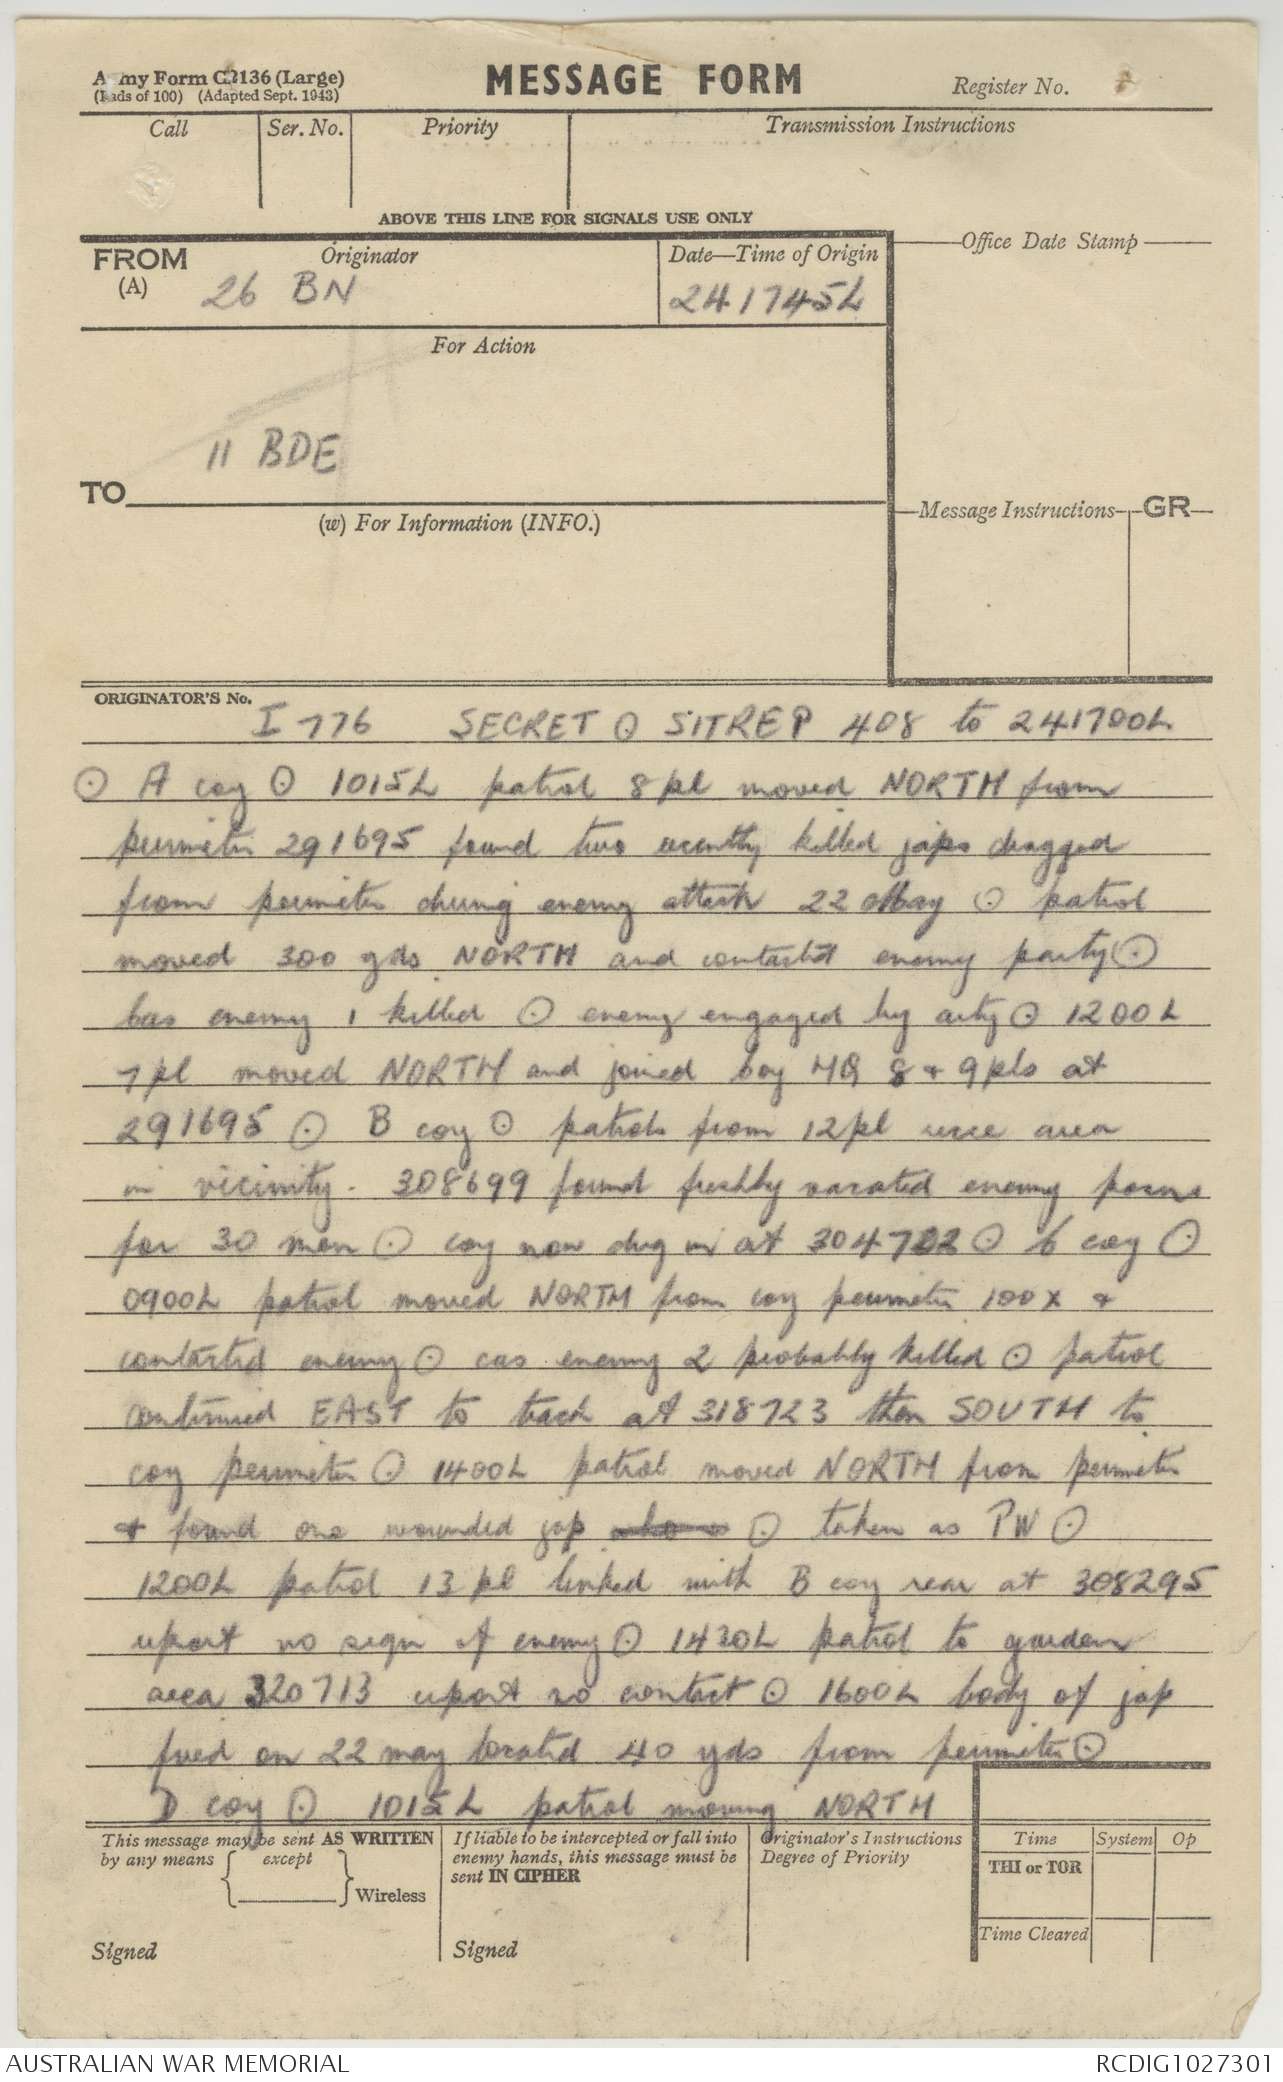 Army Form C2136 (Large)
(Pads of 100) (Adapted Sept. 1943)
MESSAGE FORM
Register No.
Call
Ser. No.
Priority
Transmission Instructions
ABOVE THIS LINE FOR SIGNALS USE ONLY
FROM
(A)
Originator
26 BN
Date—Time of Origin
241745L
Office Date Stamp
For Action
11 BDE
TO
(w) For Information (INFO.)
Message Instructions
GR
ORIGINATOR'S No.
I 776 SECRET ⊙ SITREP 408 to 241700L
⊙ A coy ⊙ 1015L patrol 8 pl moved NORTH from
perimeter 291695 found two recently killed japs dragged
from perimeter during enemy attack 22 May ⊙ patrol
moved 300 yds NORTH and contacted enemy party ⊙
Cas enemy 1 killed ⊙ enemy engaged by arty ⊙ 1200L
7 pl moved NORTH and joined Coy HQ 8 + 9 pls at
291695 ⊙ B coy ⊙ patrols from 12 pl recce area
in vicinity 308699 found freshly vacated enemy posns
for 30 men ⊙ coy now dug in at 304702 ⊙ C coy ⊙
0900L patrol moved NORTH from coy perimeter 100x +
contacted enemy ⊙ cas enemy 2 probably killed ⊙ patrol
continued EAST to track at 318723 then SOUTH to
coy perimeter ⊙ 1400L patrol moved NORTH from perimeter
+ found one wounded jap ⊙ taken as PW ⊙
1200L patrol 13 pl linked with B coy rear at 308295
report no sign of enemy ⊙ 1430L patrol to garden
area 320713 report no contact ⊙ 1600L body of jap
fired on 22 may located 40 yds from perimeter ⊙
D coy ⊙ 1015L patrol moving NORTH
This message may be sent AS WRITTEN
by any means except
Wireless
Signed
If liable to be intercepted or fall into
enemy hands, this message must be
sent IN CIPHER
Signed
Originator's Instructions
Degree of Priority
Time
System
Op
THI or TOR
Time Cleared
AUSTRALIAN WAR MEMORIAL
RCDIG1027301